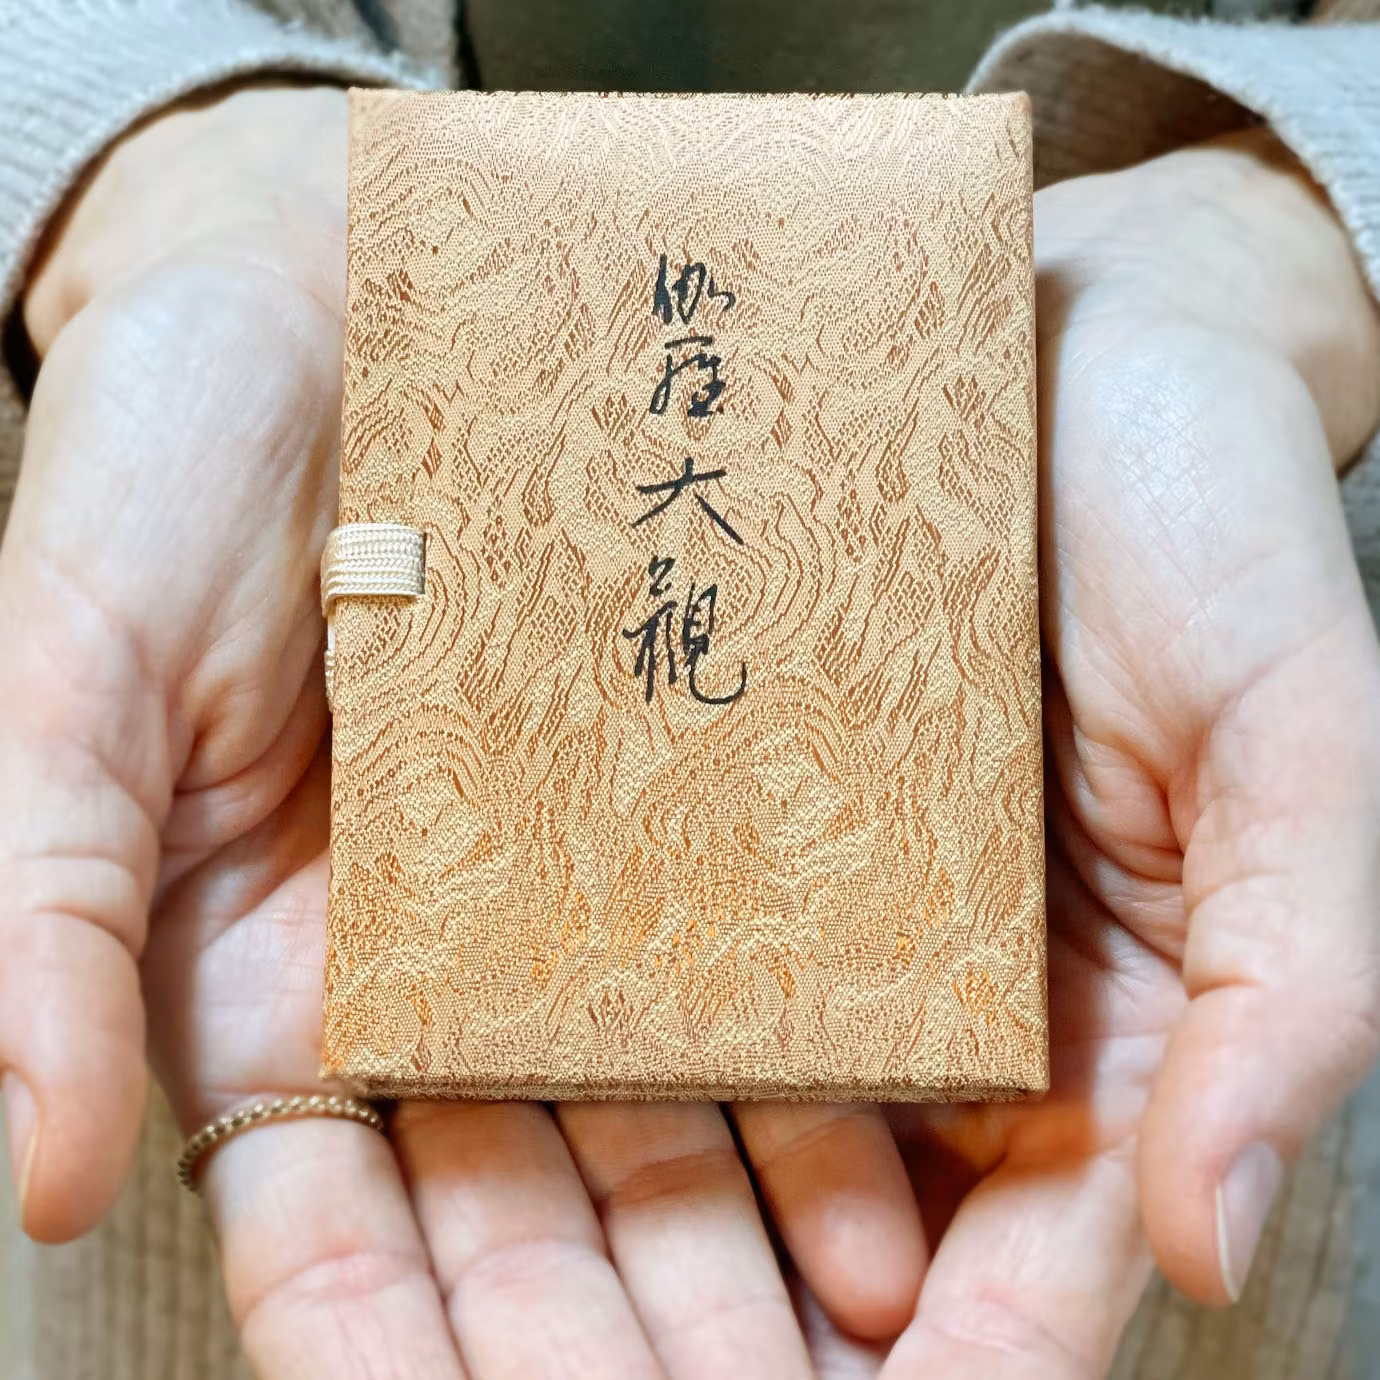 伽羅大觀